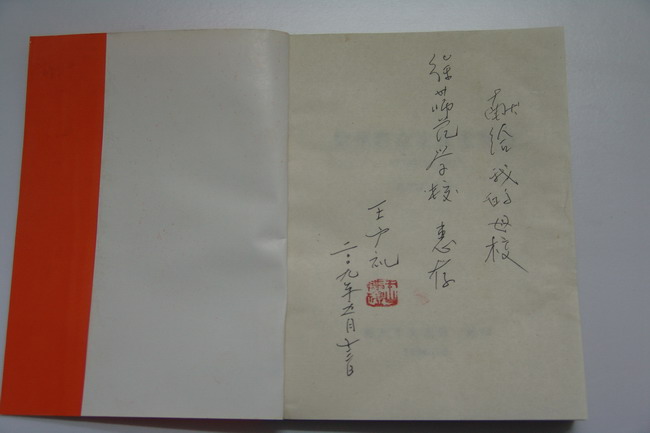 献给我的母校
徐州师范学校 惠存
王 礼
二〇〇九年五月十二日